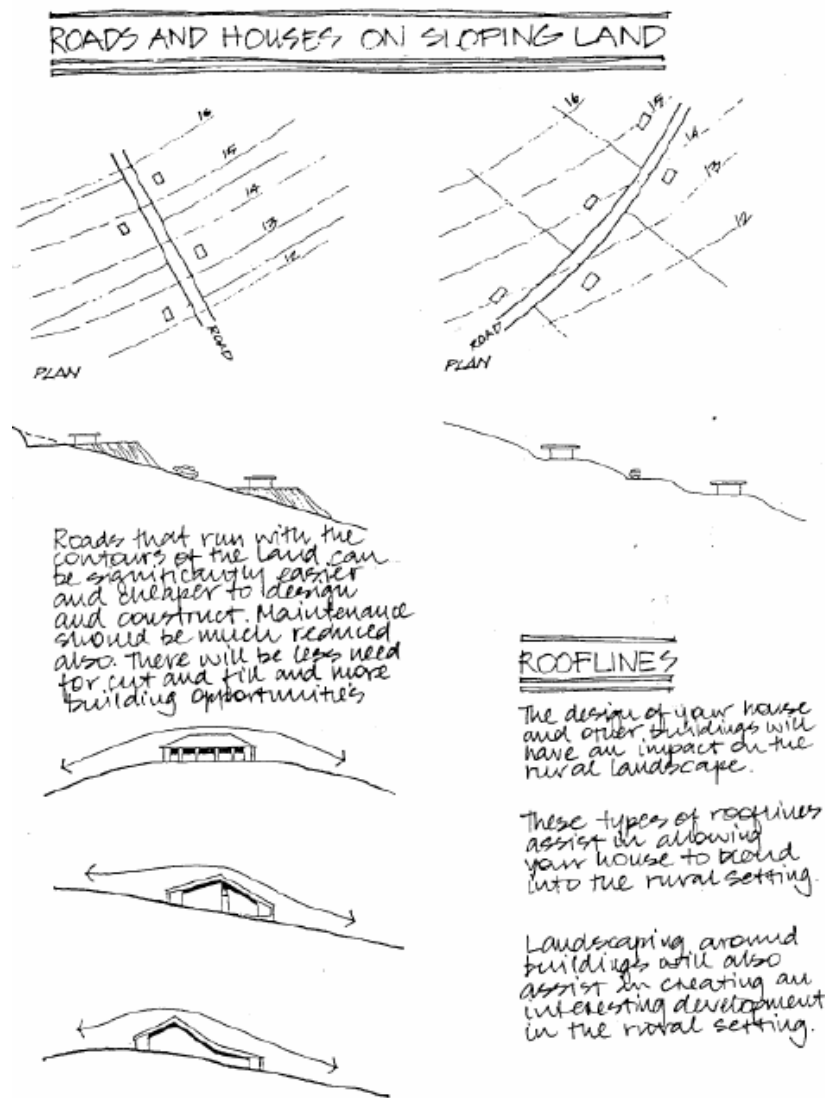 ROADS AND HOUSES ON SLOPING LAND
16
15
14
13
12
ROAD
PLAN
16
15
14
13
12
ROAD
PLAN
Roads that run with the
contours of the land can
be significantly easier
and cheaper to design
and construct. Maintenance
should be much reduced
also. There will be less need
for cut and fill and more
building opportunities
ROOFLINES
The design of your house
and other buildings will
have an impact on the
rural landscape.
These types of rooflines
assist in allowing
your house to blend
into the rural setting.
Landscaping around
buildings will also
assist in creating an
interesting development
in the rural setting.